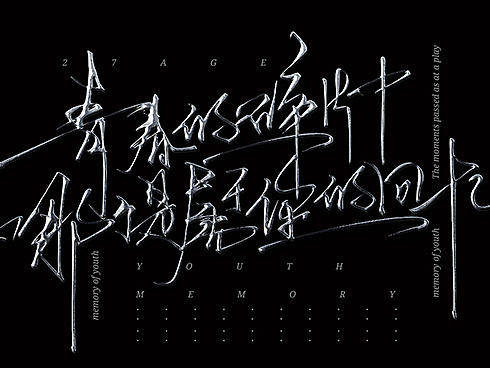 27AGE
青春的碎片
哪场属于你的回忆
The moments passed as at a play
memory of youth
memory of youth
YOUTH
MEMORY